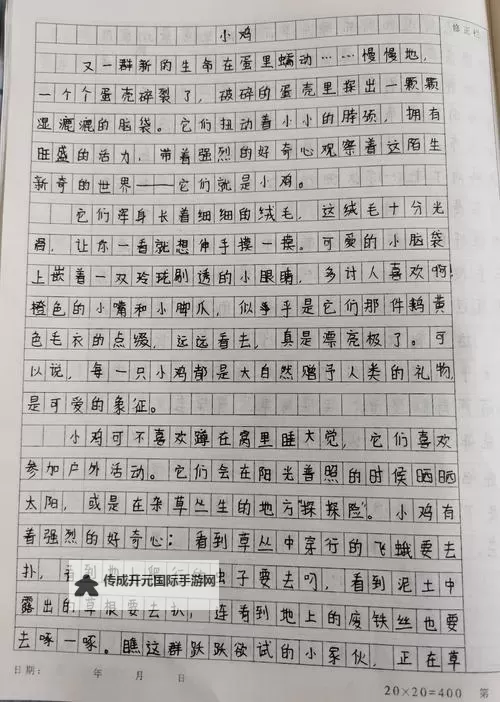 小鸡
修正栏
又一群新的生命在蛋里蠕动……慢慢地,
一个个蛋壳碎裂了,破碎的蛋壳里探出一颗颗
湿漉漉的脑袋。它们扭动着小小的脖颈,拥有
旺盛的活力,带着强烈的好奇心观察着这陌生
新奇的世界——它们就是小鸡。
它们浑身长着细细的绒毛,这绒毛十分光
滑,让你一看就想伸手摸一摸。可爱的小脑袋
上嵌着一双玲珑剔透的小眼睛,多讨人喜欢啊!
橙色的小嘴和小脚爪,似乎是它们那件鹅黄
色毛衣的点缀,远远看去,真是漂亮极了。可
以说,每一只小鸡都是大自然赠予人类的礼物,
是可爱的象征。
小鸡可不喜欢蹲在窝里睡大觉,它们喜欢
参加户外活动。它们会在阳光普照的时候晒晒
太阳,或是在杂草丛生的地方“探探险”。小鸡有
着强烈的好奇心:看到草丛中穿行的飞蛾要去
扑,看到地上爬行的虫子要去叼,看到泥土中
传成开元国际手游网
露出的草根要去扒,连看到地上的废铁丝也要
去啄一啄。瞧这群跃跃欲试的小家伙,正在草
日期: 年 月 日
20×20=400 第